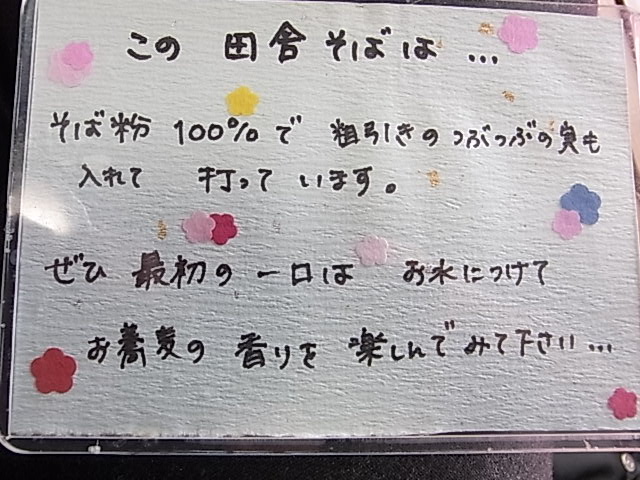 この 田舎そばは…
そば粉 100%で 粗引きのつぶつぶの実も
入れて 打って います。
ぜひ 最初の 一口は お水につけて
お蕎麦の 香りを 楽しんでみて下さい…